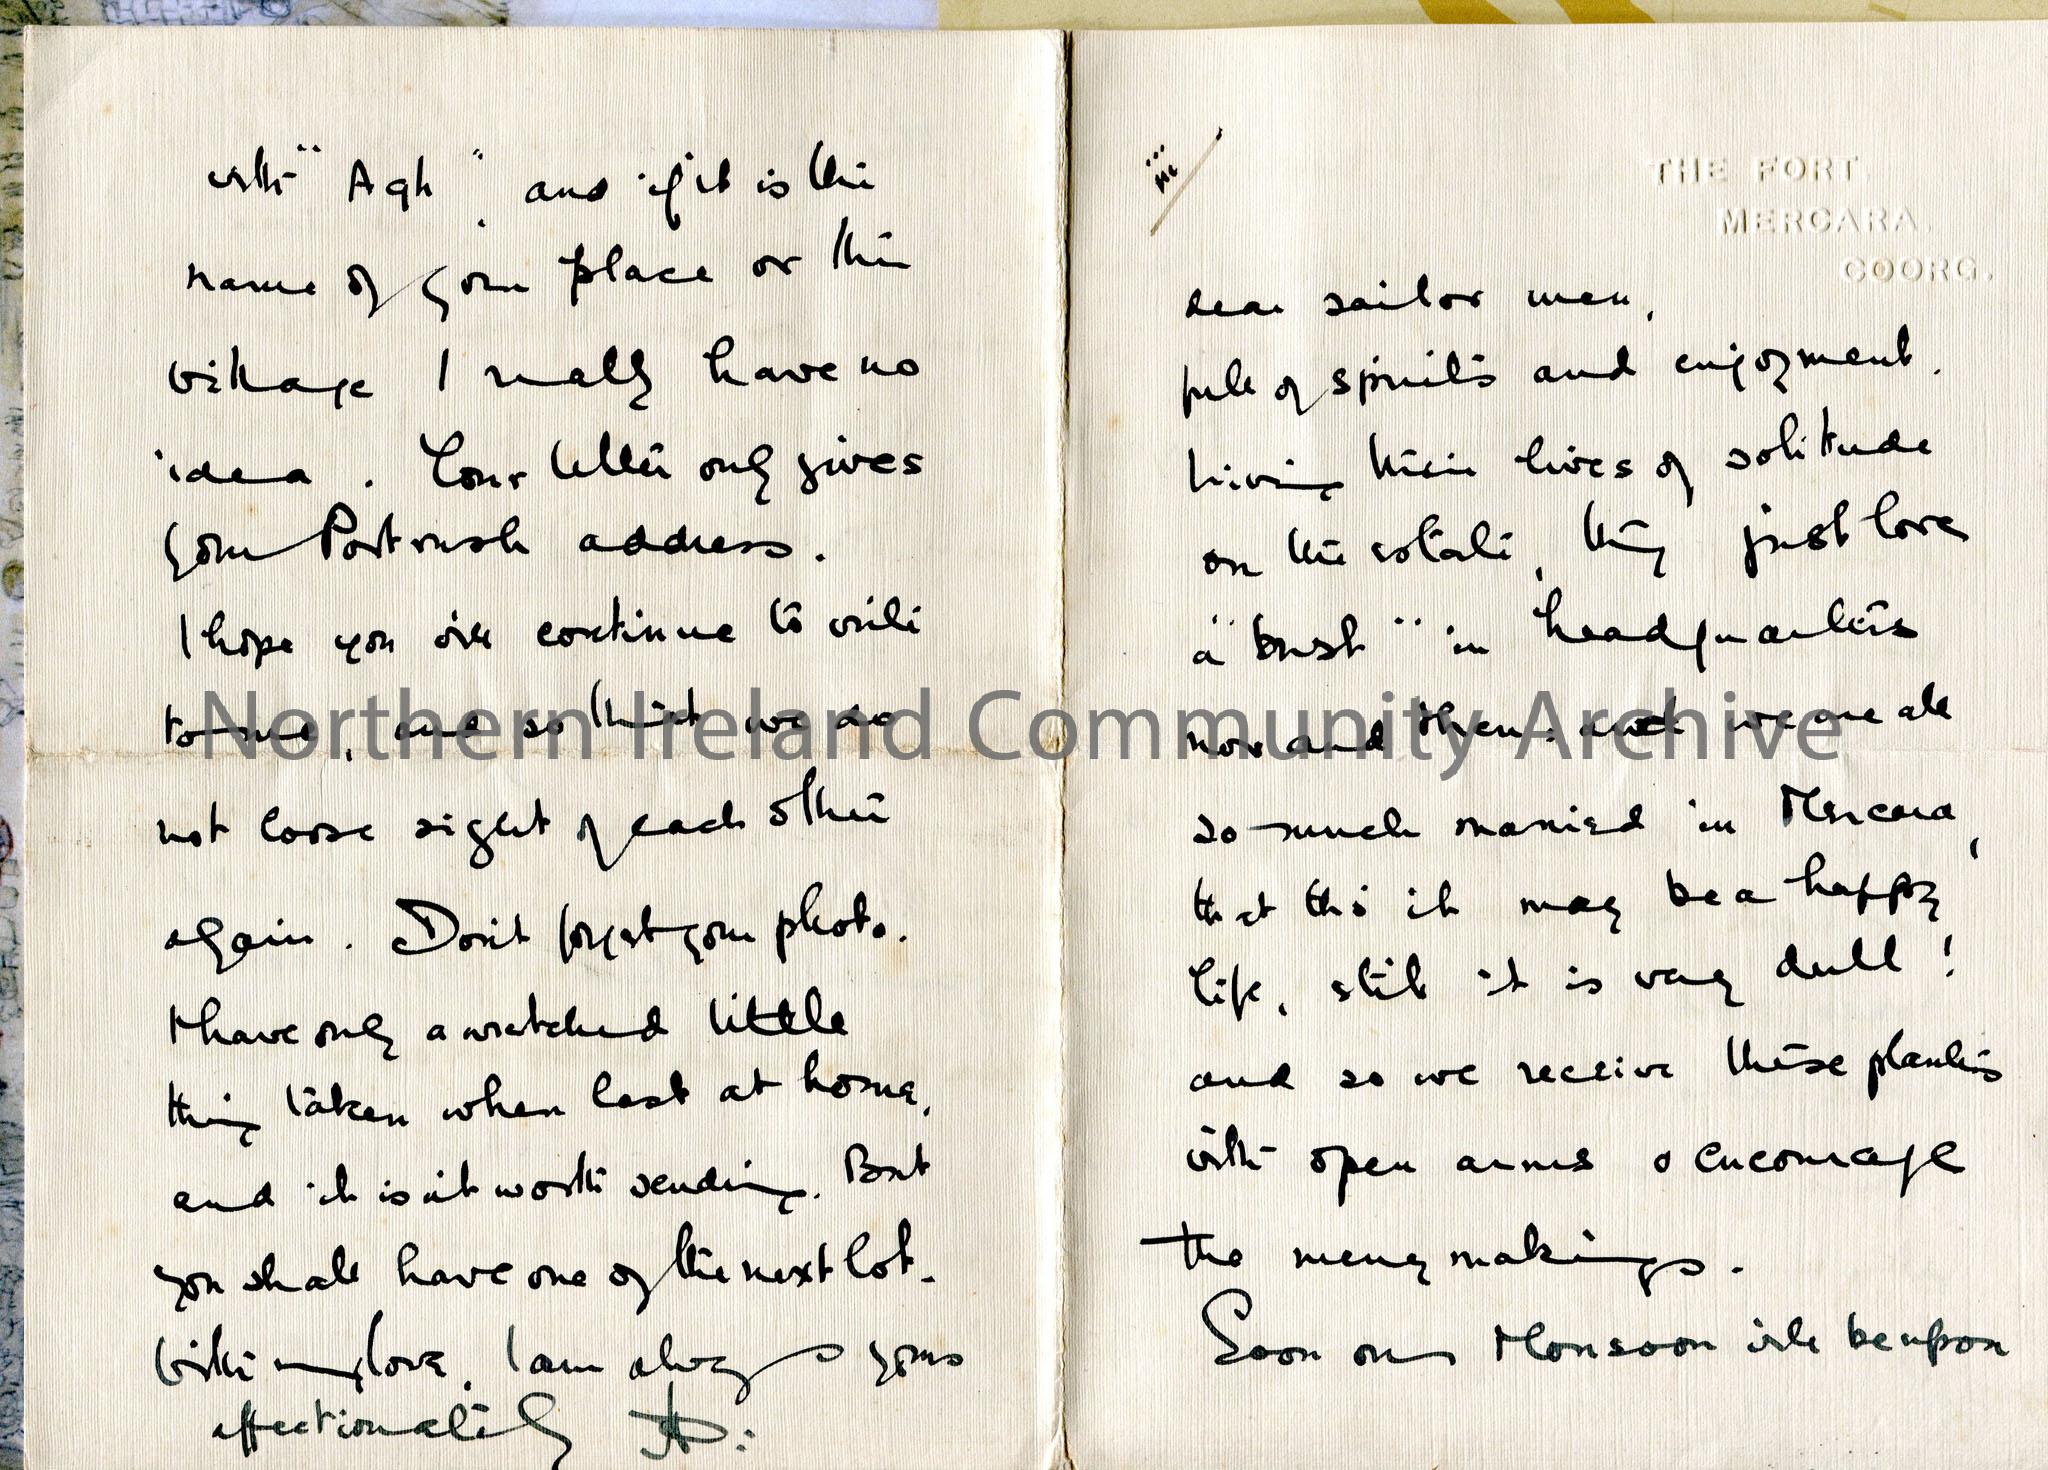 with "Agh", and if it is the
name of your place or the
village I really have no
idea. Your letter only gives
your Portrush address.
I hope you will continue to write
to me, and so that we do
not loose sight of each other
again. Don't forget your photo.
I have only a wretched little
thing taken when last at home,
and it is it worth sending. But
you shall have one of the next lot.
With my love, I am always yours
affectionately
III
THE FORT.
MERCARA.
COORG.
dear sailor men,
full of spirits and enjoyment.
Living their lives of solitude
on the estate, they just love
a "burst" in headquarters
now and then. and we are all
so much married in Mercara,
that tho' it may be a happy
life, still it is very dull!
and so we receive these planters
with open arms & encourage
the merry makings.
Soon our Monsoon will be upon
Northern Ireland Community Archive